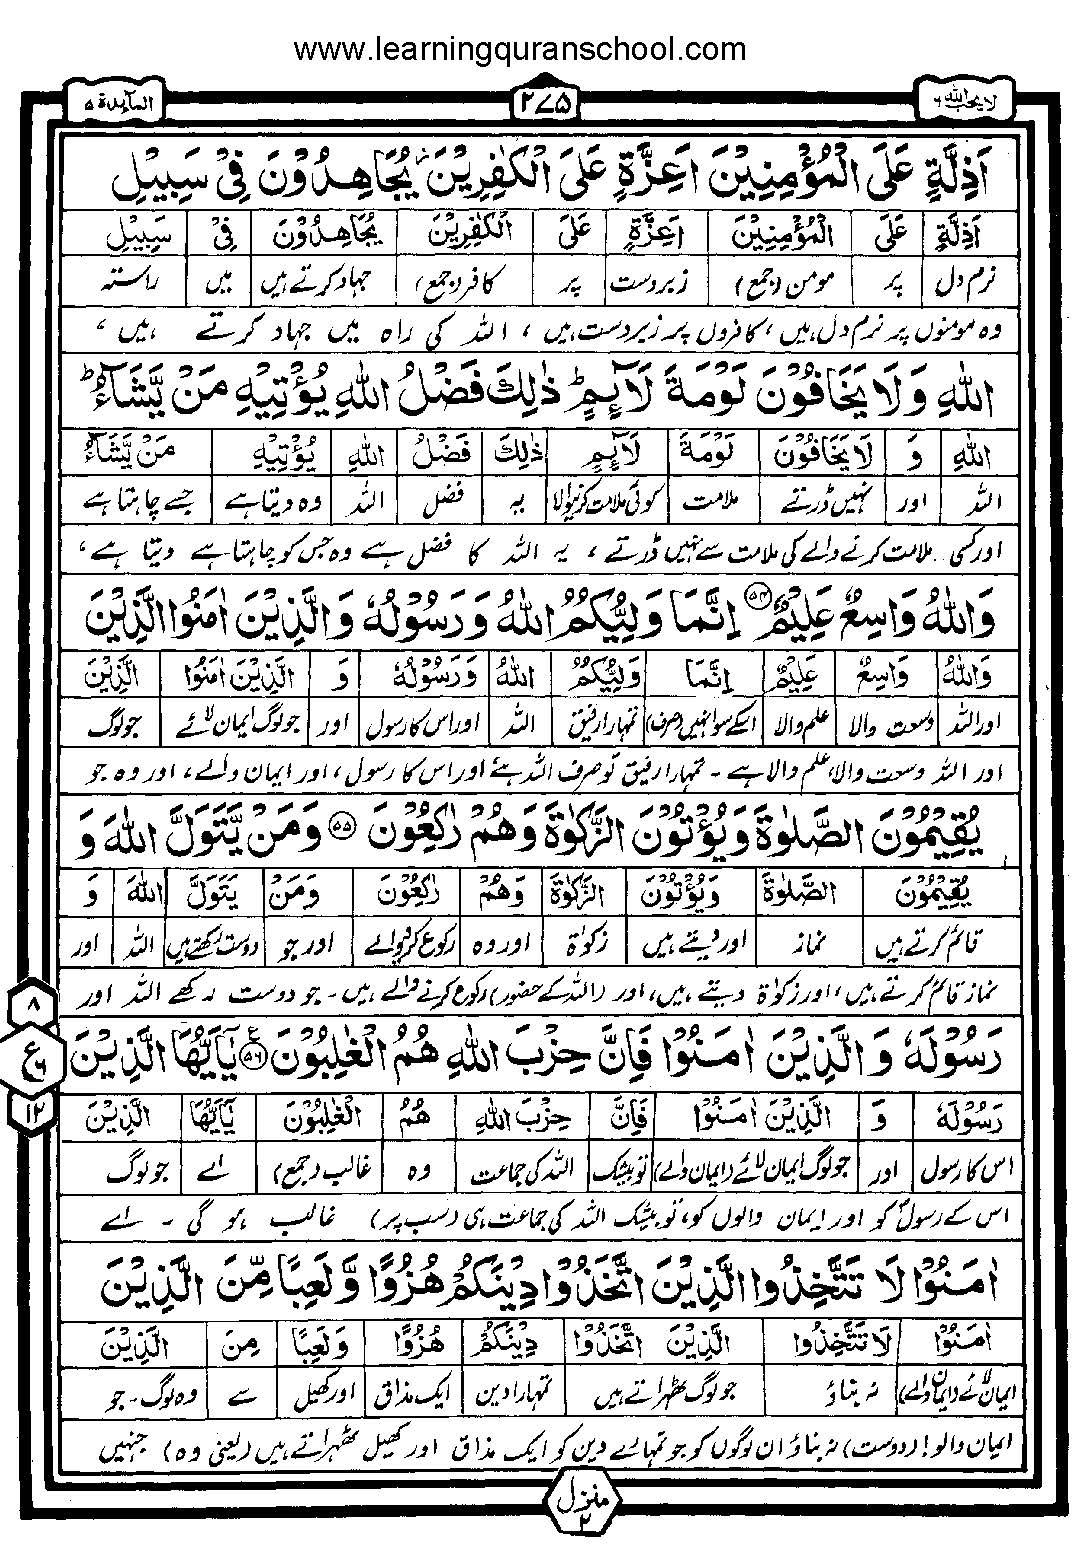 www.learningquranschool.com
لا یحب اللہ ۶
۲۷۵
المآئدۃ ۵
اَذِلَّةٍ عَلَى الْمُؤْمِنِيْنَ اَعِزَّةٍ عَلَى الْكٰفِرِيْنَ ؗ يُجَاهِدُوْنَ فِيْ سَبِيْلِ
اَذِلَّةٍ عَلَى الْمُؤْمِنِيْنَ اَعِزَّةٍ عَلَى الْكٰفِرِيْنَ يُجَاهِدُوْنَ فِيْ سَبِيْلِ
نرم دل پر مومن (جمع) زبردست پر کافر (جمع) جہاد کرتے ہیں میں راستہ
وہ مومنوں پر نرم دل ہیں، کافروں پر زبردست ہیں، اللہ کی راہ میں جہاد کرتے ہیں،
اللّٰهِ وَلَا يَخَافُوْنَ لَوْمَةَ لَآئِمٍ ؕ ذٰلِكَ فَضْلُ اللّٰهِ يُؤْتِيْهِ مَنْ يَّشَآءُ ؕ
اللّٰهِ وَ لَا يَخَافُوْنَ لَوْمَةَ لَآئِمٍ ذٰلِكَ فَضْلُ اللّٰهِ يُؤْتِيْهِ مَنْ يَّشَآءُ
اللہ اور نہیں ڈرتے ملامت کوئی ملامت کرنیوالا یہ فضل اللہ وہ دیتا ہے جسے چاہتا ہے
اور کسی ملامت کرنے والے کی ملامت سے نہیں ڈرتے، یہ اللہ کا فضل ہے وہ جس کو چاہتا ہے دیتا ہے،
وَاللّٰهُ وَاسِعٌ عَلِيْمٌ ۵۴ اِنَّمَا وَلِيُّكُمُ اللّٰهُ وَرَسُوْلُهٗ وَالَّذِيْنَ اٰمَنُوا الَّذِيْنَ
وَاللّٰهُ وَاسِعٌ عَلِيْمٌ اِنَّمَا وَلِيُّكُمُ اللّٰهُ وَرَسُوْلُهٗ وَ الَّذِيْنَ اٰمَنُوا الَّذِيْنَ
اور اللہ وسعت والا علم والا اسکے سوا نہیں (صرف) تمہارا رفیق اللہ اور اس کا رسول اور جو لوگ ایمان لائے جو لوگ
اور اللہ وسعت والا، علم والا ہے ۔ تمہارا رفیق تو صرف اللہ ہے اور اس کا رسول، اور ایمان والے، اور وہ جو
يُقِيْمُوْنَ الصَّلٰوةَ وَيُؤْتُوْنَ الزَّكٰوةَ وَهُمْ رٰكِعُوْنَ ۵۵ وَمَنْ يَّتَوَلَّ اللّٰهَ وَ
يُقِيْمُوْنَ الصَّلٰوةَ وَيُؤْتُوْنَ الزَّكٰوةَ وَهُمْ رٰكِعُوْنَ وَمَنْ يَتَوَلَّ اللّٰهَ وَ
قائم کرتے ہیں نماز اور دیتے ہیں زکوٰۃ اور وہ رکوع کرنیوالے اور جو دوست رکھتے ہیں اللہ اور
نماز قائم کرتے ہیں، اور زکوٰۃ دیتے ہیں، اور (اللہ کے حضور) رکوع کرنے والے ہیں ۔ جو دوست رکھے اللہ اور
۸
رَسُوْلَهٗ وَالَّذِيْنَ اٰمَنُوْا فَاِنَّ حِزْبَ اللّٰهِ هُمُ الْغٰلِبُوْنَ ۵۶ ع يٰٓاَيُّهَا الَّذِيْنَ
ع ۶
رَسُوْلَهٗ وَ الَّذِيْنَ اٰمَنُوْا فَاِنَّ حِزْبَ اللّٰهِ هُمُ الْغٰلِبُوْنَ يٰٓاَيُّهَا الَّذِيْنَ
۱۲
اس کا رسول اور جو لوگ ایمان لائے (ایمان والے) تو بیشک اللہ کی جماعت وہ غالب (جمع) اے جو لوگ
اس کے رسولؐ کو اور ایمان والوں کو، تو بیشک اللہ کی جماعت ہی (سب پر) غالب ہو گی ۔ اے
اٰمَنُوْا لَا تَتَّخِذُوا الَّذِيْنَ اتَّخَذُوْا دِيْنَكُمْ هُزُوًا وَّلَعِبًا مِّنَ الَّذِيْنَ
اٰمَنُوْا لَا تَتَّخِذُوا الَّذِيْنَ اتَّخَذُوْا دِيْنَكُمْ هُزُوًا وَلَعِبًا مِنَ الَّذِيْنَ
ایمان لائے (ایمان والے) نہ بناؤ جو لوگ ٹھہراتے ہیں تمہارا دین ایک مذاق اور کھیل سے وہ لوگ ۔ جو
ایمان والو! (دوست) نہ بناؤ ان لوگوں کو جو تمہارے دین کو ایک مذاق اور کھیل ٹھہراتے ہیں (یعنی وہ) جنہیں
منزل ۲